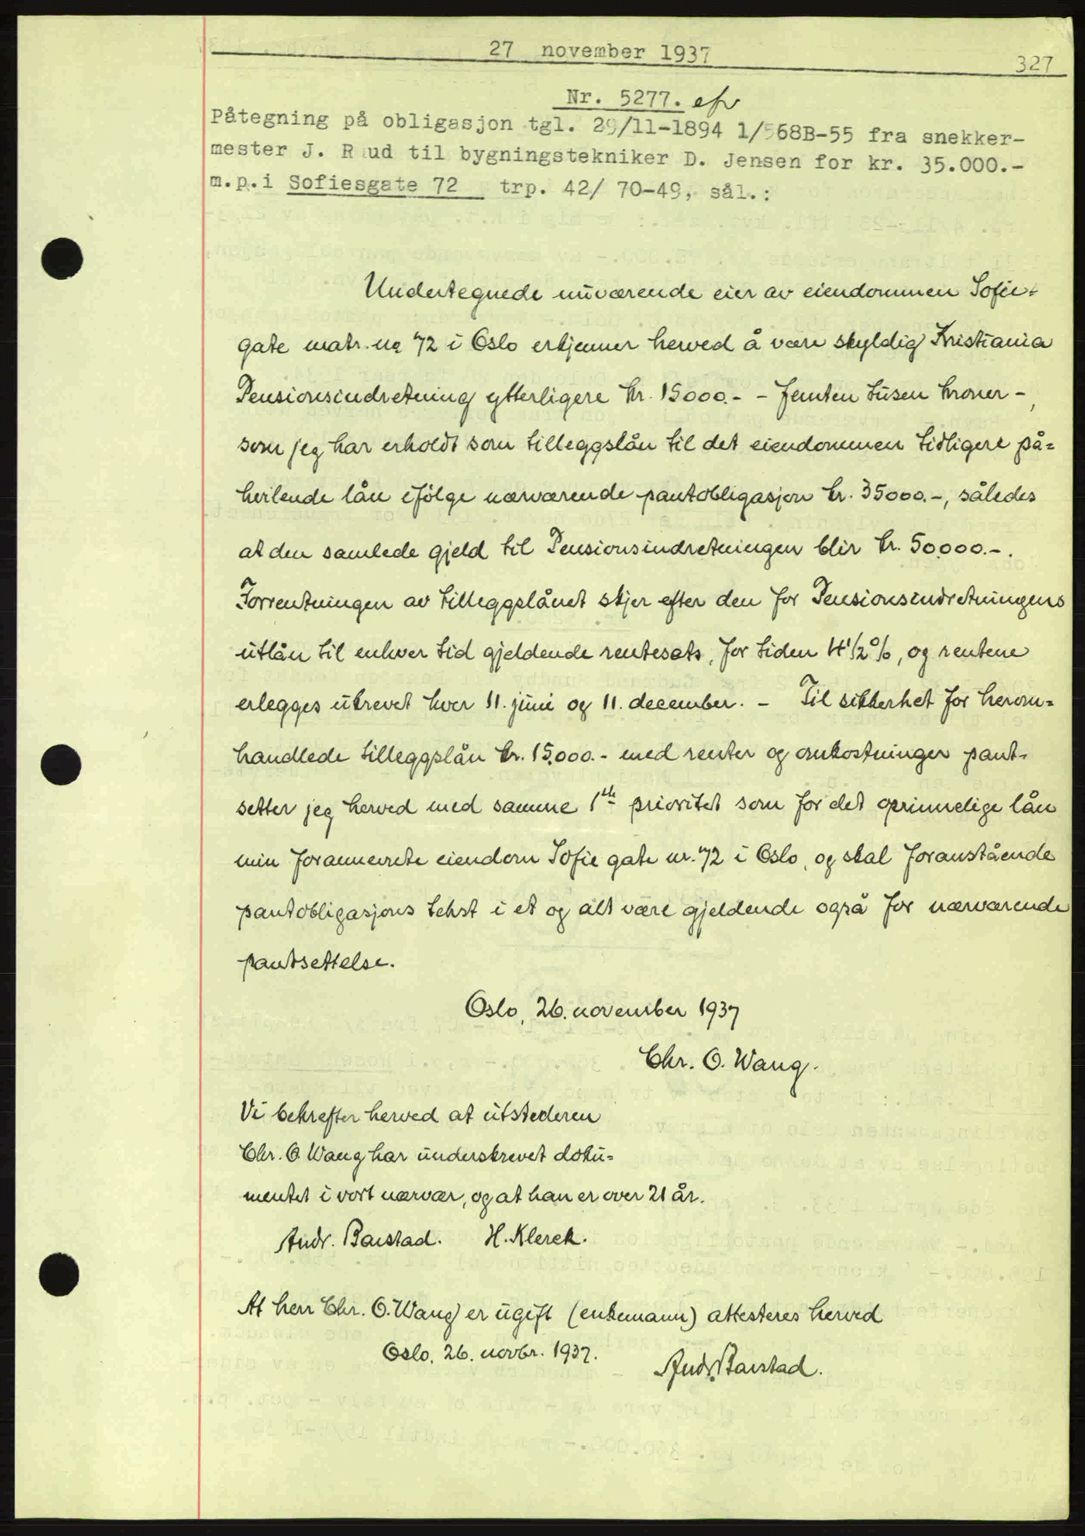 27 november 1937
327
Nr. 5277. efv
Påtegning på obligasjon tgl. 29/11-1894 1/568B-55 fra snekker-
mester J. R ud til bygningstekniker D. Jensen for kr. 35.000.-
m.p.i Sofiesgate 72 trp. 42/ 70-49, sål.:
Undertegnede nuværende eier av eiendommen Sofie-
gate matr. no 72 i Oslo erkjenner herved å være skyldig Kristiania
Pensionsindretning ytterligere kr. 15000.- - femten tusen kroner -,
som jeg har erholdt som tilleggslån til det eiendommen tidligere på=
hvilende lån ifølge nærværende pantobligasjon kr. 35000.-, således
at den samlede gjeld til Pensionsindretningen blir kr. 50.000.-.
Forrentningen av tilleggslånet skjer efter den for Pensionsindretningens
utlån til enhver tid gjeldende rentesats, for tiden 4 1/2 %, og rentene
erlegges utrevet hver 11. juni og 11. december. - Til sikkerhet for herom=
handlede tilleggslån kr. 15.000.- med renter og omkostninger pant-
setter jeg herved med samme 1ste prioritet som for det oprinnelige lån
min forannevnte eiendom Sofie gate nr. 72 i Oslo, og skal foranstående
pantobligasjons tekst i et og alt være gjeldende også for nærværende
pantsettelse.
Oslo, 26. november 1937
Chr. O. Wang.
Vi bekrefter herved at utstederen
Chr. O. Wang har underskrevet doku=
mentet i vort nærvær, og at han er over 21 år.
Andr. Barstad. H. Klerck.
At herr Chr. O. Wang er ugift (enkemann) attesteres herved
Oslo, 26. novbr. 1937.
Andr. Barstad.